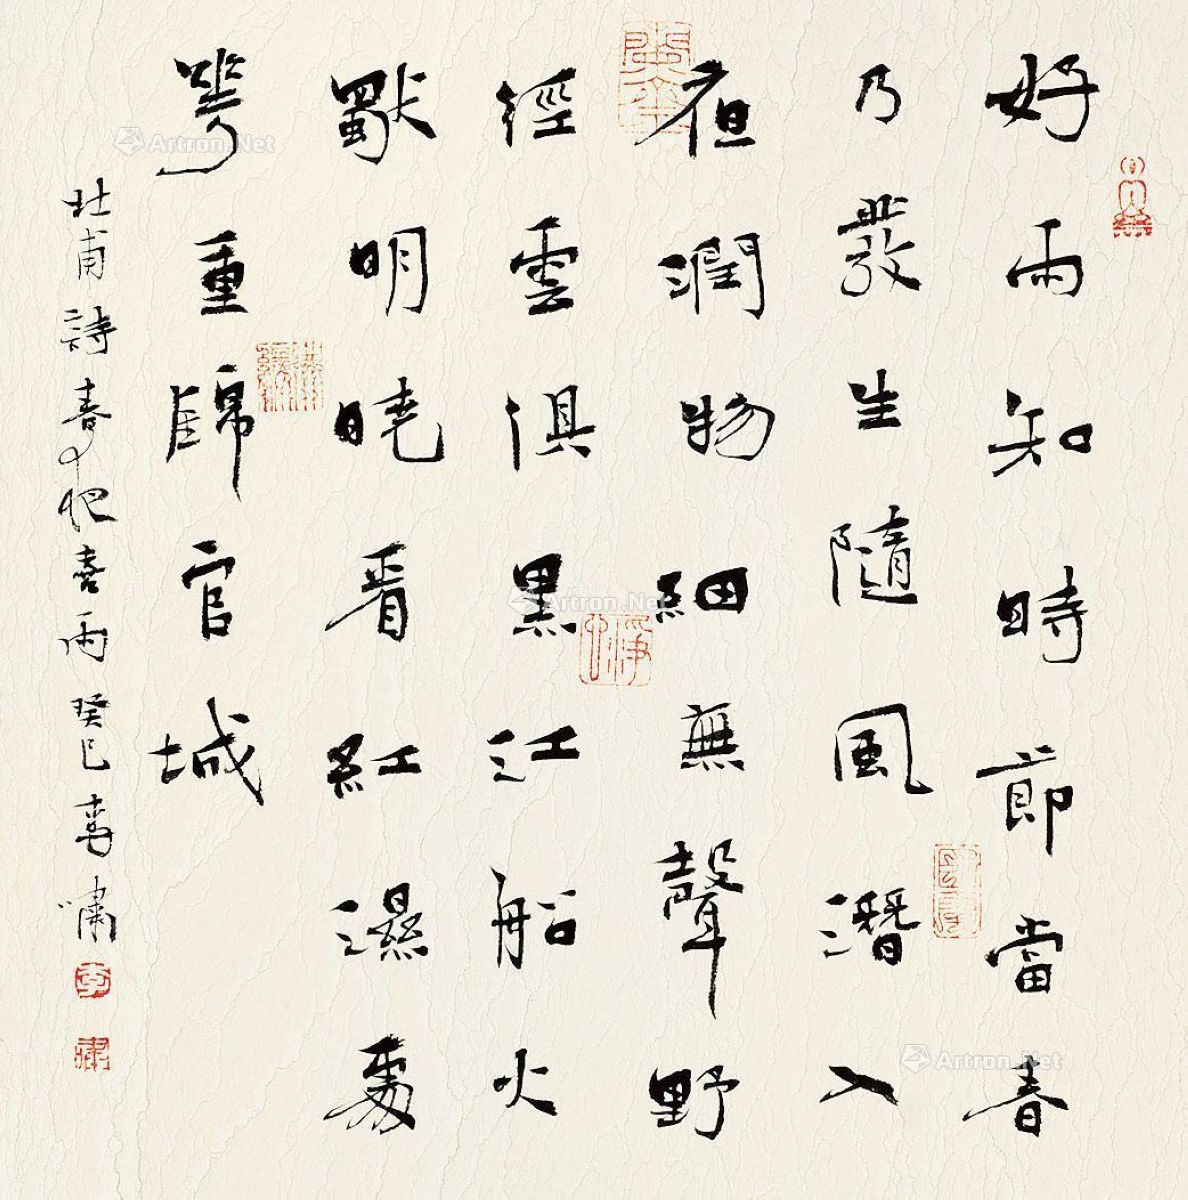 好雨知時節當春
乃發生隨風潛入
夜潤物細無聲野
經雲俱黑江船火
獨明曉看紅濕處
花重錦官城
杜甫詩春夜喜雨癸巳李嘯
Artron.Net
Artron.Net
Artron.Net